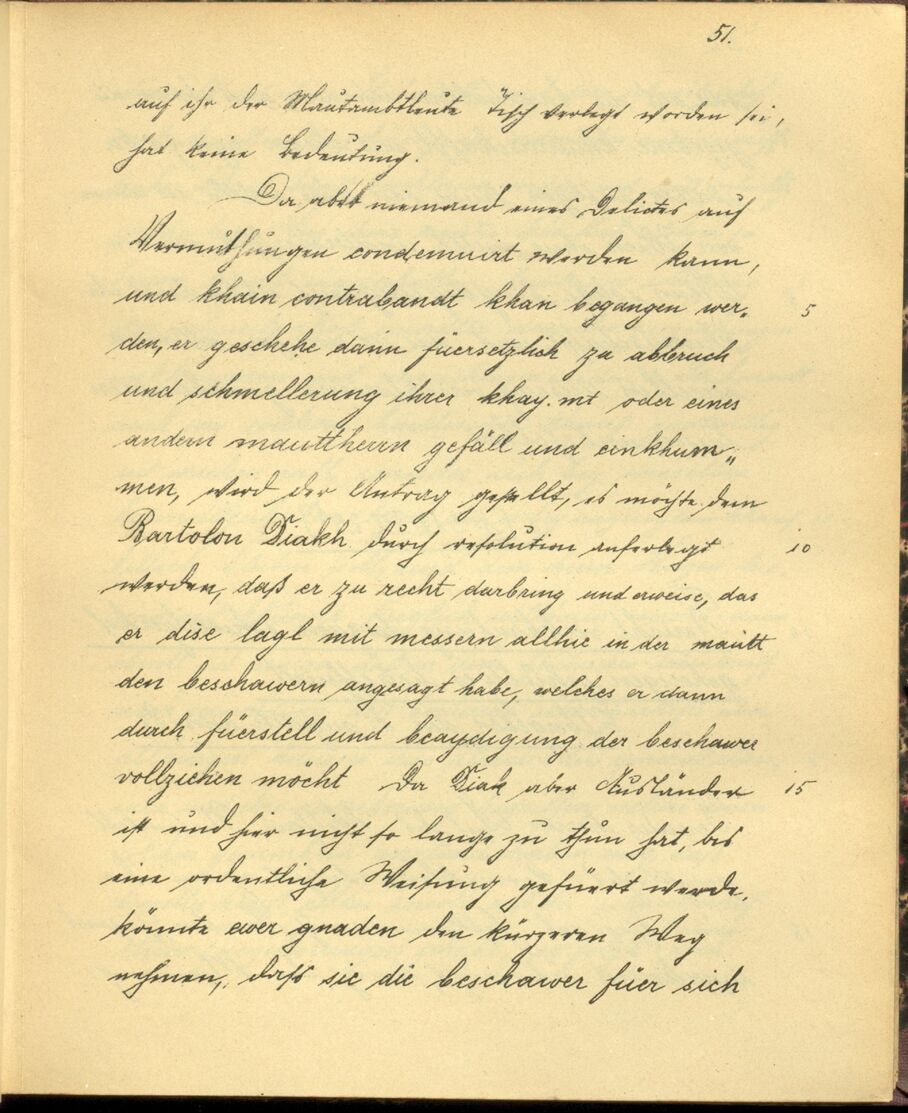 51.
auf ihr der Mautambtleute Tisch verlegt worden sei,
hat keine Bedeutung.
Da aber niemand eines Delictes auf
Vermuthungen condemnirt werden kann,
und khain contrabandt khan begangen wer„ 5
den, er geschehe dann füersetzlich zu abbruch
und schmellerung ihrer khay. mt oder eines
andern mauttherrn gefäll und einkhum„
men, wird der Antrag gestellt, es möchte dem
Bartolon Diakh durch resolution auferlegt 10
werden, daß er zu recht darbring und erweise, das
er dise lagl mit messern allhie in der mautt
den beschawern angesagt habe, welches er dann
durch füerstell und beaydigung der beschawer
vollziehen möcht Da Diak aber Ausländer 15
ist und hier nicht so lange zu thun hat, bis
eine ordentliche Weisung gefüert werde,
könnte ewer gnaden den kürzeren Weg
nehmen, daß sie die beschawer füer sich